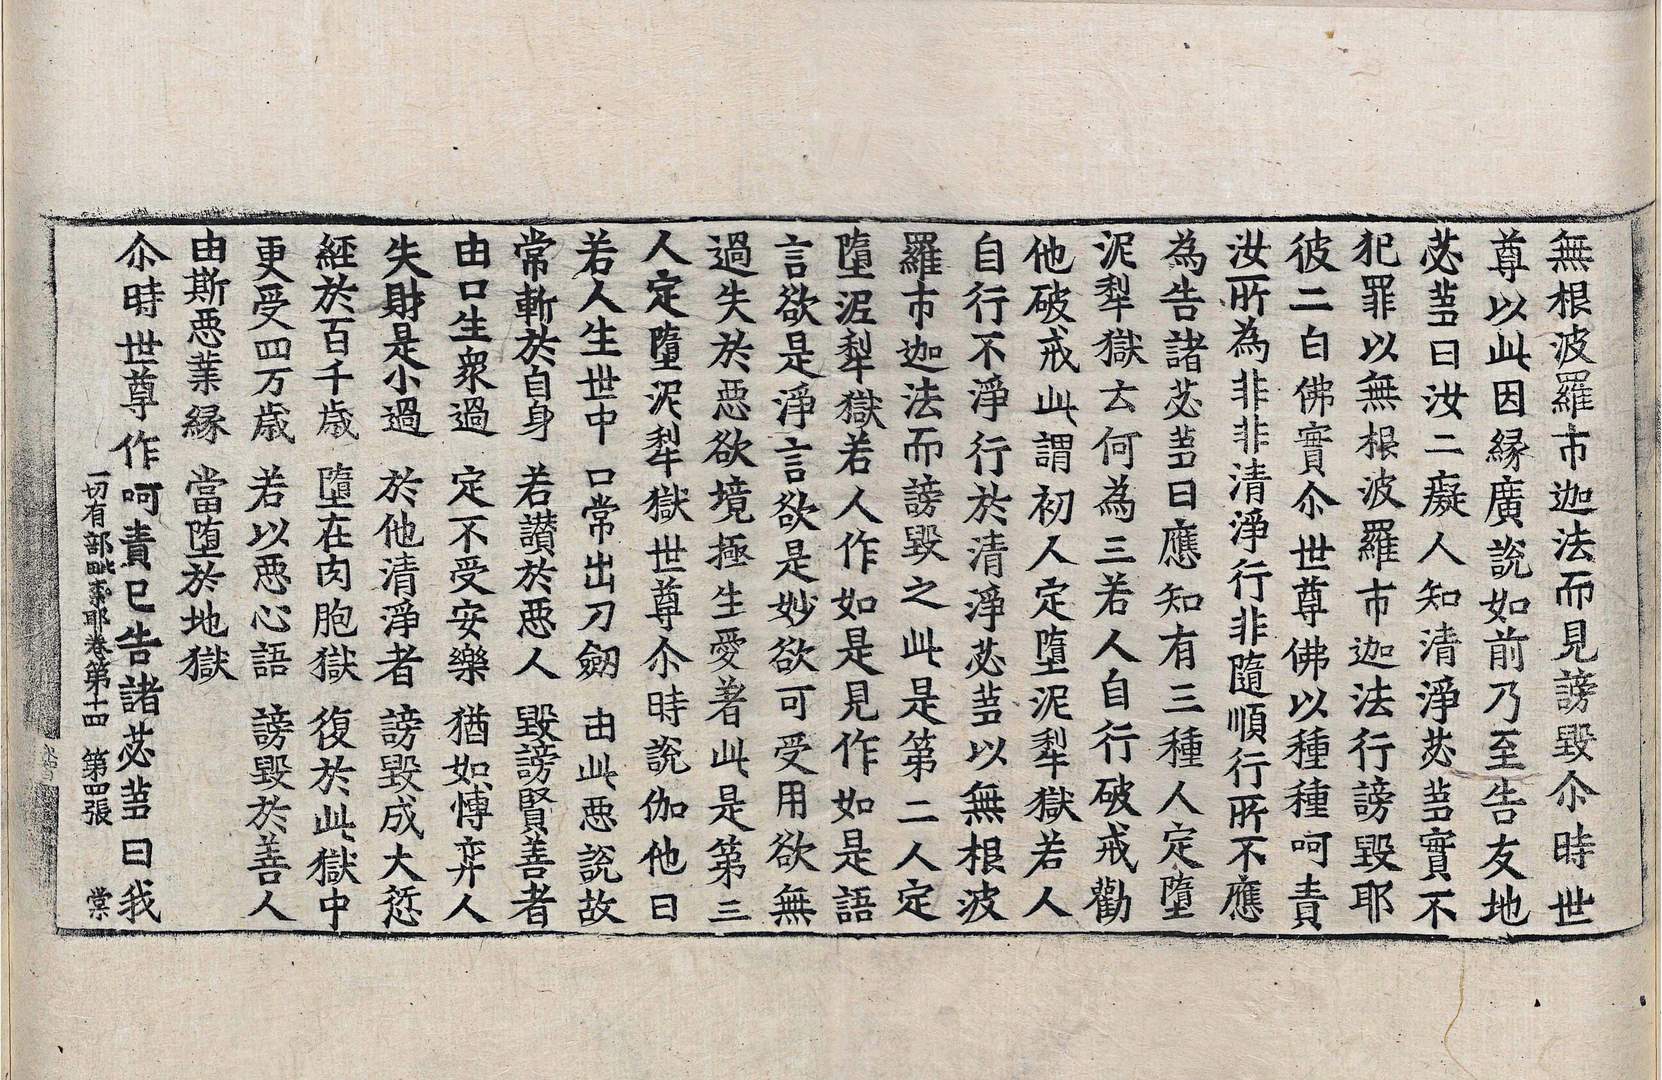 無根波羅市迦法而見謗毀尒時世
尊以此因縁廣說如前乃至告友地
苾蒭曰汝二癡人知清淨苾蒭實不
犯罪以無根波羅市迦法行謗毀耶
彼二白佛實尒世尊佛以種種呵責
汝所為非非清淨行非隨順行所不應
為告諸苾蒭曰應知有三種人定墮
泥犁獄去何為三若人自行破戒勸
他破戒此謂初人定墮泥犁獄若人
自行不淨行於清淨苾蒭以無根波
羅市迦法而謗毀之此是第二人定
墮泥犁獄若人作如是見作如是語
言欲是淨言欲是妙欲可受用欲無
過失於惡欲境極生愛著此是第三
人定墮泥犁獄世尊尒時說伽他曰
若人生世中 口常出刀劒 由此惡說故
常斬於自身 若讃於惡人 毀謗賢善者
由口生衆過 定不受安樂 猶如愽弈人
失財是小過 於他清淨者 謗毀成大愆
經於百千歳 墮在肉胞獄 復於此獄中
更受四万歳 若以惡心語 謗毀於善人
由斯惡業縁 當堕於地獄
尒時世尊作呵責已告諸苾蒭曰我
一切有部毗奈耶卷第十四 第四張 棠